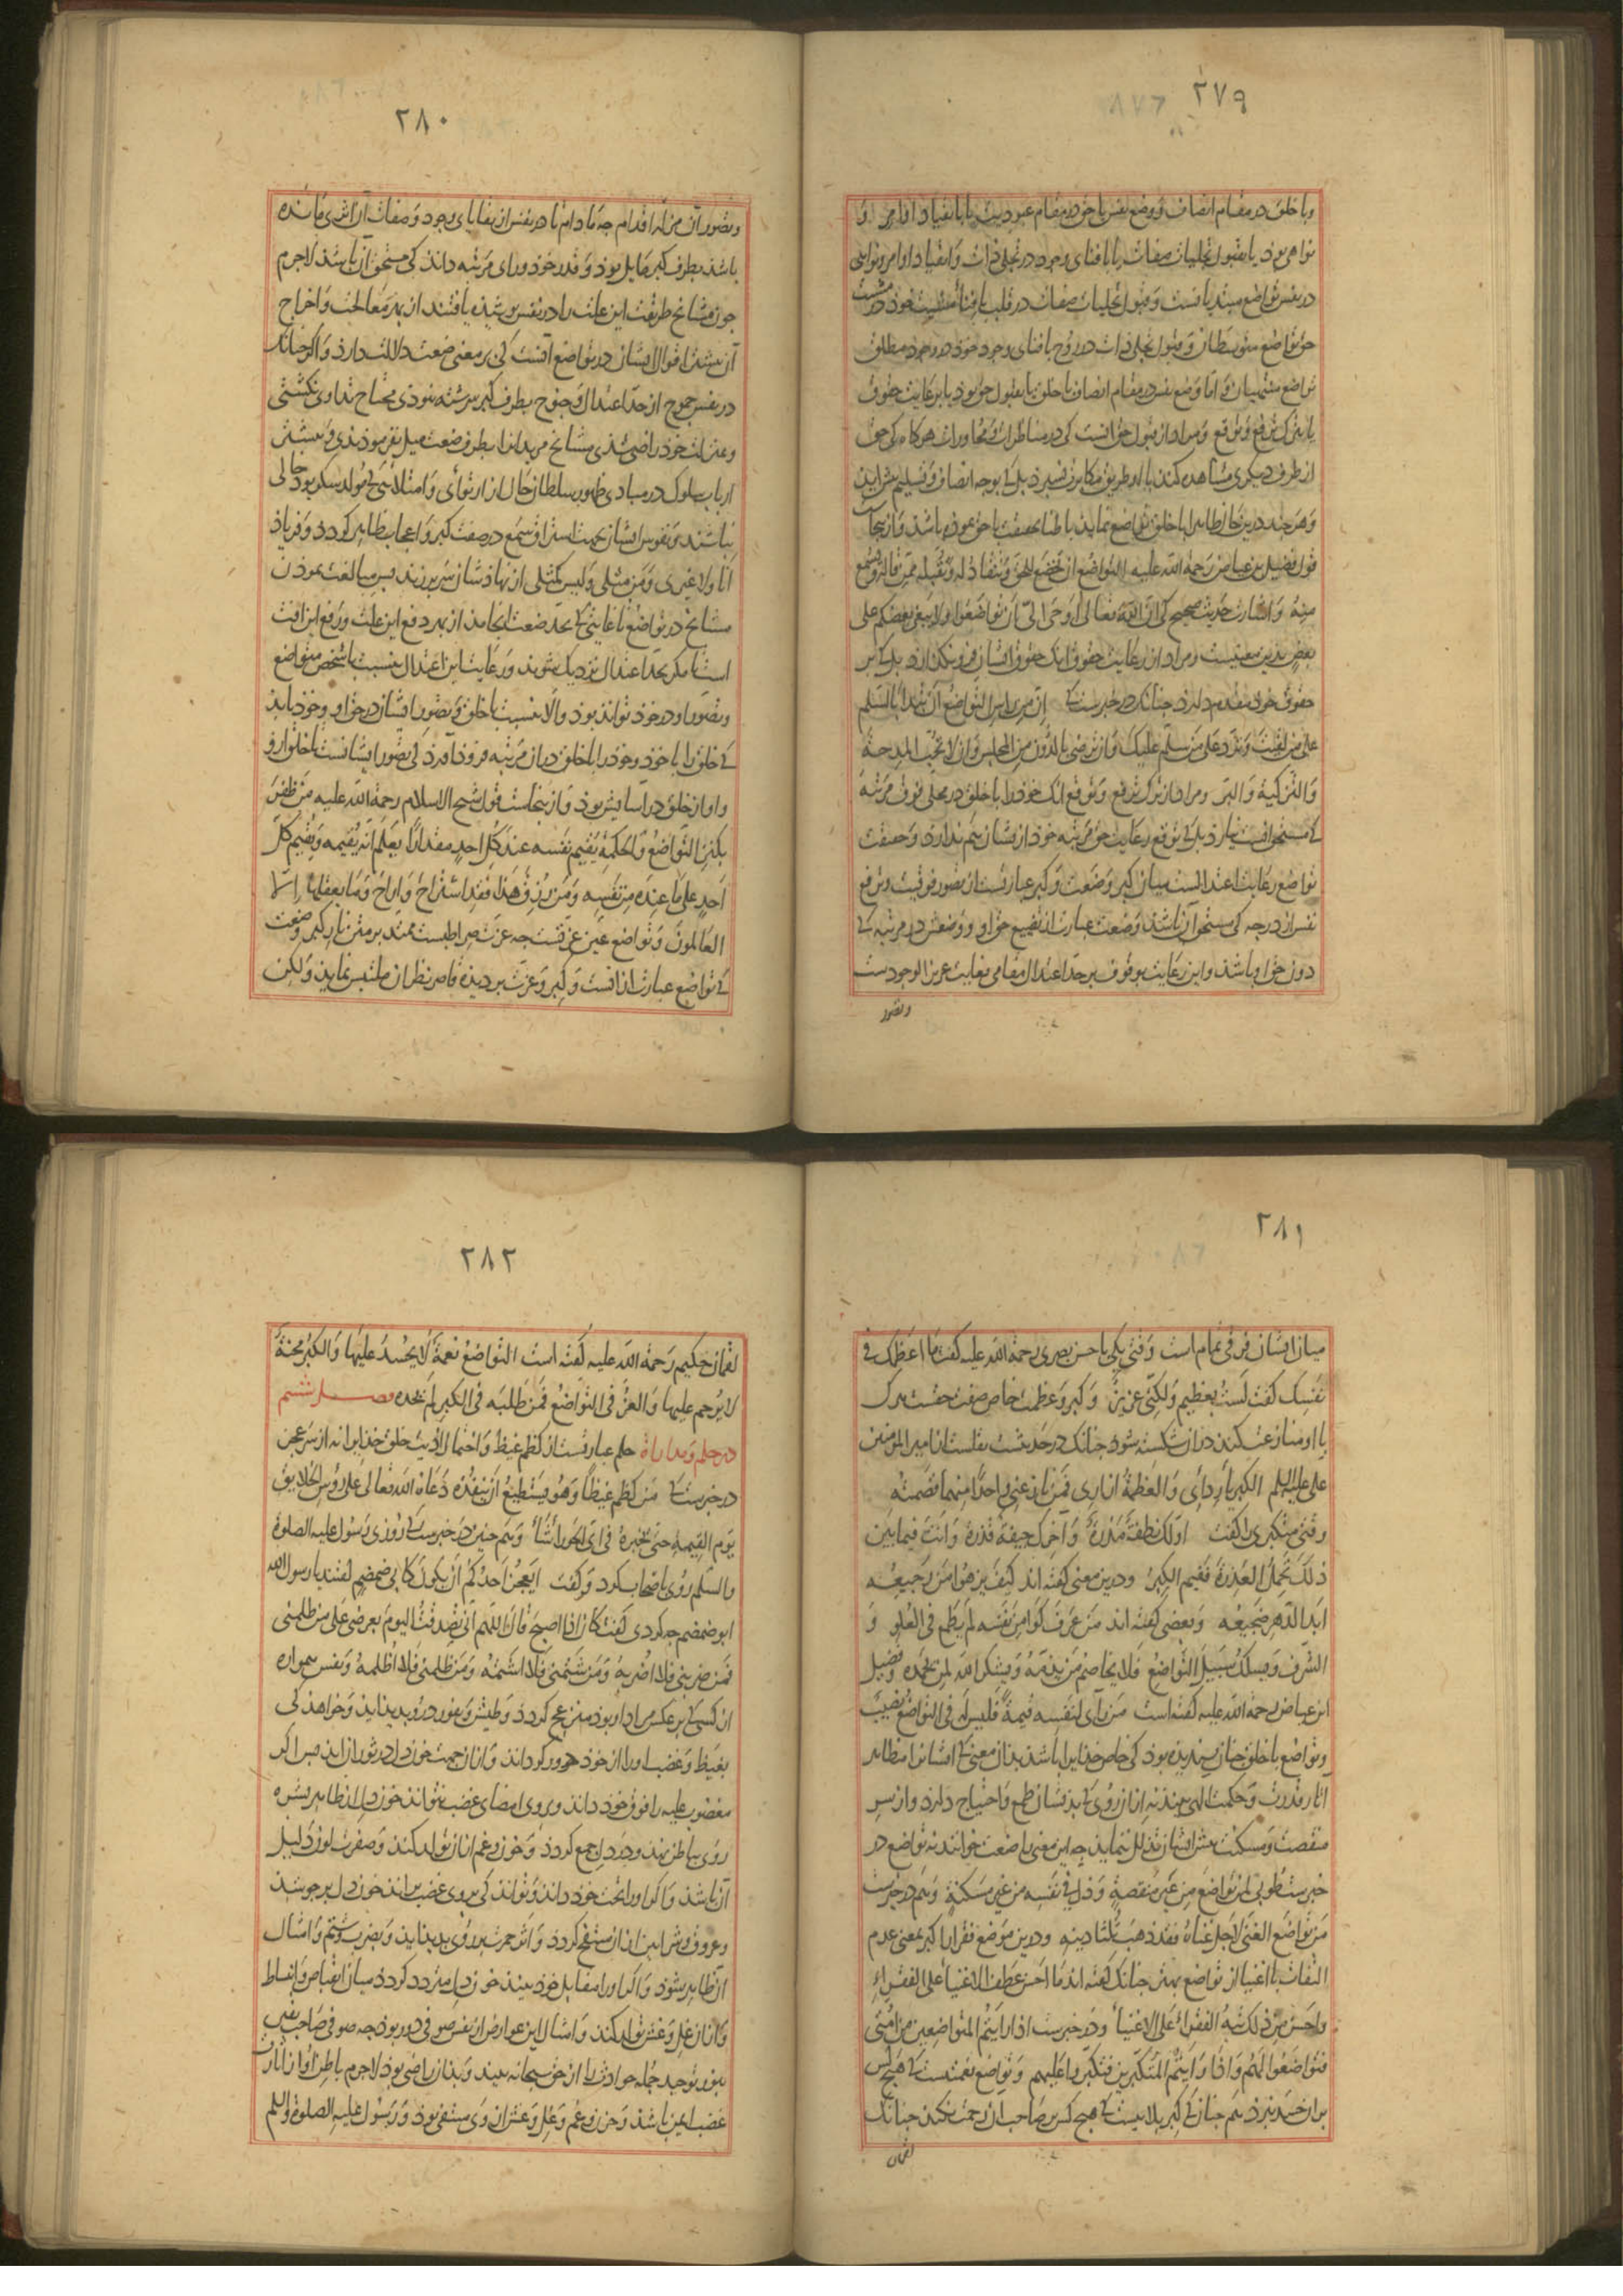 ٢٧٩
و با خلق در مقام انصاف و وضع نفس با حق در مقام عبودیت یا بانقیاد اوامر و
نواهی بود یا بقبول تجلیات صفات یا بافنای وجود در تجلی ذات و انقیاد اوامر و نواهی
در نفس تواضع مبتدیانست و قبول تجلیات صفات در قلب بافناء مشیت خود در مشیت
حق تواضع متوسطان و قبول تجلی ذات در روح بافنای وجود خود در وجود مطلق
تواضع منتهیان و اما وضع نفس در مقام انصاف با خلق یا بقبول حق بود یا برعایت حقوق
یا بترک ترفع و توقع و مراد از قبول حق آنست کی در مناظرات و محاورات هرکاه کی حق
از طرف دیکری مشاهده کند با او طریق مکابرت نسپرد بل کی بوجه انصاف و تسلیم پیش آید
و هر چند درین حال ظاهرا با خلق تواضع نماید باطنا بحقیقت با حق نموده باشد و از ینجاست
قول فضیل بن عیاض رحمة الله علیه التواضع ان تخضع للحق و تنقاد له و تقبله ممن قاله و تسمع
منه و اشارت حدیث صحیح کی ان الله تعالی اوحی الیّ ان تواضعوا ولا یبغی بعضکم علی
بعض بدین معنیست و مراد از رعایت حقوق آنک حقوق ایشان فرو نکذارد بل کی بر
حقوق خود مقدم دارد چنانک در خبرست کی ان من رأس التواضع ان تبتدأ بالسلم
علی من لقیت و ترد علی من سلم علیک و ان ترضی بالدون من المجلس و ان لا تحب المدحة
و التزکیة و البر و مراد از ترک ترفع و توقع آنک خود را با خلق در محلی فوق مرتبه
کی مستحق آنست نیارد بل کی توقع رعایت حق مرتبه خود از یشان هم ندارد و حقیقت
تواضع رعایت اعتدالست میان کبر و ضعت و کبر عبارتست از تصور فوقیت و ترفع
نفس از درجه کی مستحق آن باشد و ضعت عبارت از تضییع حق او و وضعش در مرتبه کی
دون حق او باشد و این رعایت و وقوف بر حد اعتدال مقامی بغایت عزیز الوجودست
وتصور
٢٨٠
وتصور آن مزلّه اقدام چه مادام تا در نفس از بقایای وجود و صفات آن اثری مانده
باشد بطرف کبر مایل بود و قدر خود ورای مرتبه داند کی مستحق آن باشد لاجرم
چون مشایخ طریقت این علت را در نفس پوشیده یافتند از بهر معالجت و اخراج
آن بیشتر اقوال ایشان در تواضع آنست کی بر معنی ضعت دلالت دارد و اکر چنانک
در نفس جموح از حد اعتدال و جنوح بطرف کبر سرشته نبودی محتاج تداوی نکشتی
و بمنزلت خود راضی شدی مشایخ مریدانرا بطرف ضعت میل نفرمودندی و بیشتر
ارباب سلوک در مبادی ظهور سلطان حال از ارتوائی و امتلائی کی مولد سکر بود خالی
نباشند و نفوس ایشان بجهت استراق سمع در صفت کبر و اعجاب ظاهر کردد و فریاد
انا ولا غیری و من مثلی و لیس کمثلی از نهاد شان سر بر زند پس مبالغت نمودن
مشایخ در تواضع تا غایتی کی بحد ضعت انجامد از بهر دفع این علت و رفع این آفت
است تا مکر بحد اعتدال نزدیک شوند و رعایت این اعتدال بنسبت با شخص متواضع
و تصور او در خود تواند بود و الا بنسبت با خلق و تصور ایشان در حق او و خود باید
کی خلق را با خود و خود را با خلق در ان مرتبه فرود آورد کی تصور ایشانست تا خلق از و
و او از خلق در آسایش بود و از ینجاست قول شیخ الاسلام رحمة الله علیه من ظفر
بکنز التواضع و الحکمة یقیم نفسه عند کل احد مقدارا یعلم انه یقیمه و یقیم کل
احد علی ما عنده من نفسه و من رزق هذا فقد استراح و اراح و ما یعقلها الا
العالمون و تواضع عین عزتست چه عزت صراطیست ممتد بر متن نار کبر و ضعت
کی تواضع عبارت از انست و کبر و عزت بر دیده قاصر نظران ملتبس نماید و لکن
٢٨١
میان ایشان فرقی تمام است وقتی یکی با حسن بصری رحمة الله علیه کفت ما اعظمک فی
نفسک کفت لست بعظیم و لکنی عزیز و کبر و عظمت خاص صفت حقست هرک
با او منازعت کند در ان شکسته شود چنانک در حدیثست بنقلست از امیر المومنین
علی علیه السلم الکبریا ردائی و العظمة ازاری فمن نازعنی واحدا منهما قصمته
وقتی متکبری را کفت اولک نطفة مذرة و آخرک جیفة قذرة و انت فیما بین
ذلک تحمل العذرة ففیم الکبر و درین معنی کفته اند کیف یزهو من رجیعه
ابد الدهر ضجیعه و بعضی کفته اند من عرف کوامن نفسه لم یطمع فی العلو و
الشرف و یسلک سبیل التواضع فلا یخاصم من یذمه و یشکر الله لمن یحمده و فضیل
ابن عیاض رحمة الله علیه کفته است من رأی لنفسه قیمة فلیس له فی التواضع نصیب
و تواضع با خلق چنان پسندیده بود کی خاص خدایرا باشد بدان معنی کی ایشانرا مظاهر
آثار قدرت و حکمت الهی بیند نه از ان روی کی بدیشان طمع و احتیاج دارد و از سر
منقصت و مسکنت پیش ایشان تذلل نماید چه این معنی را ضعت خوانند نه تواضع در
خبرست طوبی لمن تواضع من غیر منقصة و ذل فی نفسه من غیر مسکنة و هم در خبرست
من تواضع الغنی لاجل غناه فقد ذهب ثلثا دینه و درین موضع فقرا را کبر بمعنی عدم
التفات با اغنیا از تواضع بهتر چنانک کفته اند ما احسن عطف الاغنیاء علی الفقراء
و احسن من ذلک تیه الفقراء علی الاغنیاء و در خبرست اذا رأیتم المتواضعین من امتی
فتواضعوا لهم و اذا رأیتم المتکبرین فتکبروا علیهم و تواضع نعمتیست کی هیچ کس
بر ان حسد نبرد هم چنان کی کبر بلائیست کی هیچ کس بر صاحب آن رحمت نکند چنانک
لقمان
٢٨٢
لقمان حکیم رحمة الله علیه کفته است التواضع نعمة لا یحسد علیها و الکبر محنة
لا یرحم علیها و العز فی التواضع فمن طلبه فی الکبر لم یجده فصل ششم
در حلم و مدارا حلم عبارتست از کظم غیظ و احتمال اذیت خلق خدایرا نه از سر عجز
در خبرست کی من کظم غیظا و هو یستطیع ان ینفذه دعاه الله تعالی علی رؤس الخلایق
یوم القیمة حتی یخیره فی ای الحور شاء و هم چنین در خبرست کی روزی رسول علیه الصلوة
والسلم روی با اصحاب کرد و کفت ایعجز احدکم ان یکون کابی ضمضم کفتند یا رسول الله
ابو ضمضم چه کردی کفت کان اذا اصبح قال اللهم انی تصدقت الیوم بعرضی علی من ظلمنی
فمن ضربنی فلا اضربه و من شتمنی فلا اشتمه و من ظلمنی فلا اظلمه و نفس همواره
از کسی کی بر عکس مراد او بود منزعج کردد و طیش و نفور در و پدید آید و خواهد کی
بغیظ و غضب او را از خود دور کرداند و از ان جهت خون دل در ثوران آید پس اکر
مغضوب علیه را فوق خود داند و بر وی امضای غضب نتواند خون دل از ظاهر بشره
روی بباطن نهد و در دل جمع کردد و حزن و غم از ان تولد کند و صفرت لون دلیل
آن باشد و اکر او را تحت خود داند و تواند کی بر وی غضب براند خون دل بر جوشد
و عروق و شرایین از ان منتفخ کردد و اثر حمرت بر روی پدید آید و بضرب و شتم و امثال
آن ظاهر شود و اکر او را مقابل خود بیند خون دل متردد کردد میان انقباض و انبساط
و از ان غل و غش تولد کند و امثال این عوارض از نفس صوفی دور بود چه صوفی صاحب یقین
بنور توحید جمله حوادث را از حق سبحانه بیند و بدان راضی بود لاجرم باطن او از اثارت
غضب ایمن باشد و حزن و غم و غل و غش از وی منتفی بود و رسول علیه الصلوة و السلم